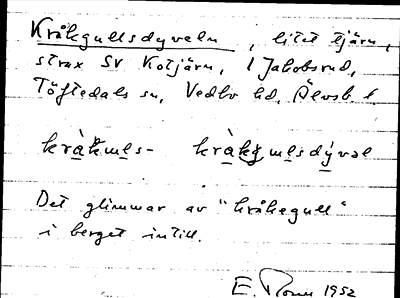 Kråkgullsdyveln, litet tjärn,
strax SV Kotjärn, 1 Jakobsrud,
Töftedals sn, Vedbo hd, Älvsb. l.
Det glimmar av "kråkegull"
i berget intill.
E. 1952